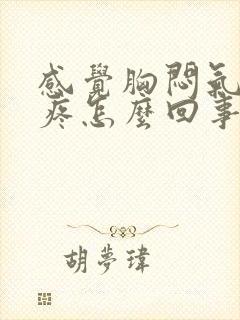 感覺胸悶氣
疼怎麼回事
胡夢瑋